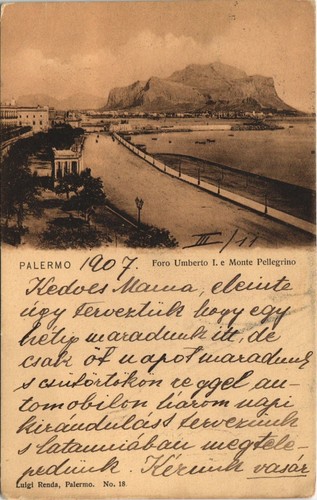 PALERMO 1907. Foro Umberto I. e Monte Pellegrino
III/11
Kedves Mama, eleinte
úgy terveztük hogy egy
hétig maradunk itt, de
csak öt napot maradunk
s csütörtökön reggel au-
tomobilon három napi
kirandulást tervezünk
s
megtele-
pedünk. Kérünk vasár
Luigi Renda, Palermo. No. 18.